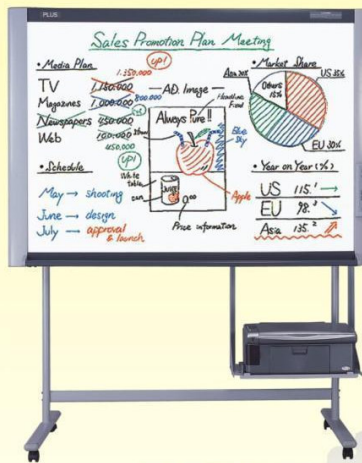 PLUS
Sales Promotion Plan Meeting
• Media Plan
up!
1.350.000
TV 1.150.000
Magazines 1.000.000 800.000
Newspapers 450.000
Web 100.000
450.000
up!
• Schedule
May → shooting
June → design
July → approval & launch
— AD. Image —
Headline Food
Always Pure!!
Blue Sky
Apple
White table
JUICE
can
Price information
• Market Share
Asia 20%
US 35%
Others 15%
EU 30%
• Year on Year (%)
US 115.1 →
EU 98.3 ↘
Asia 135.2